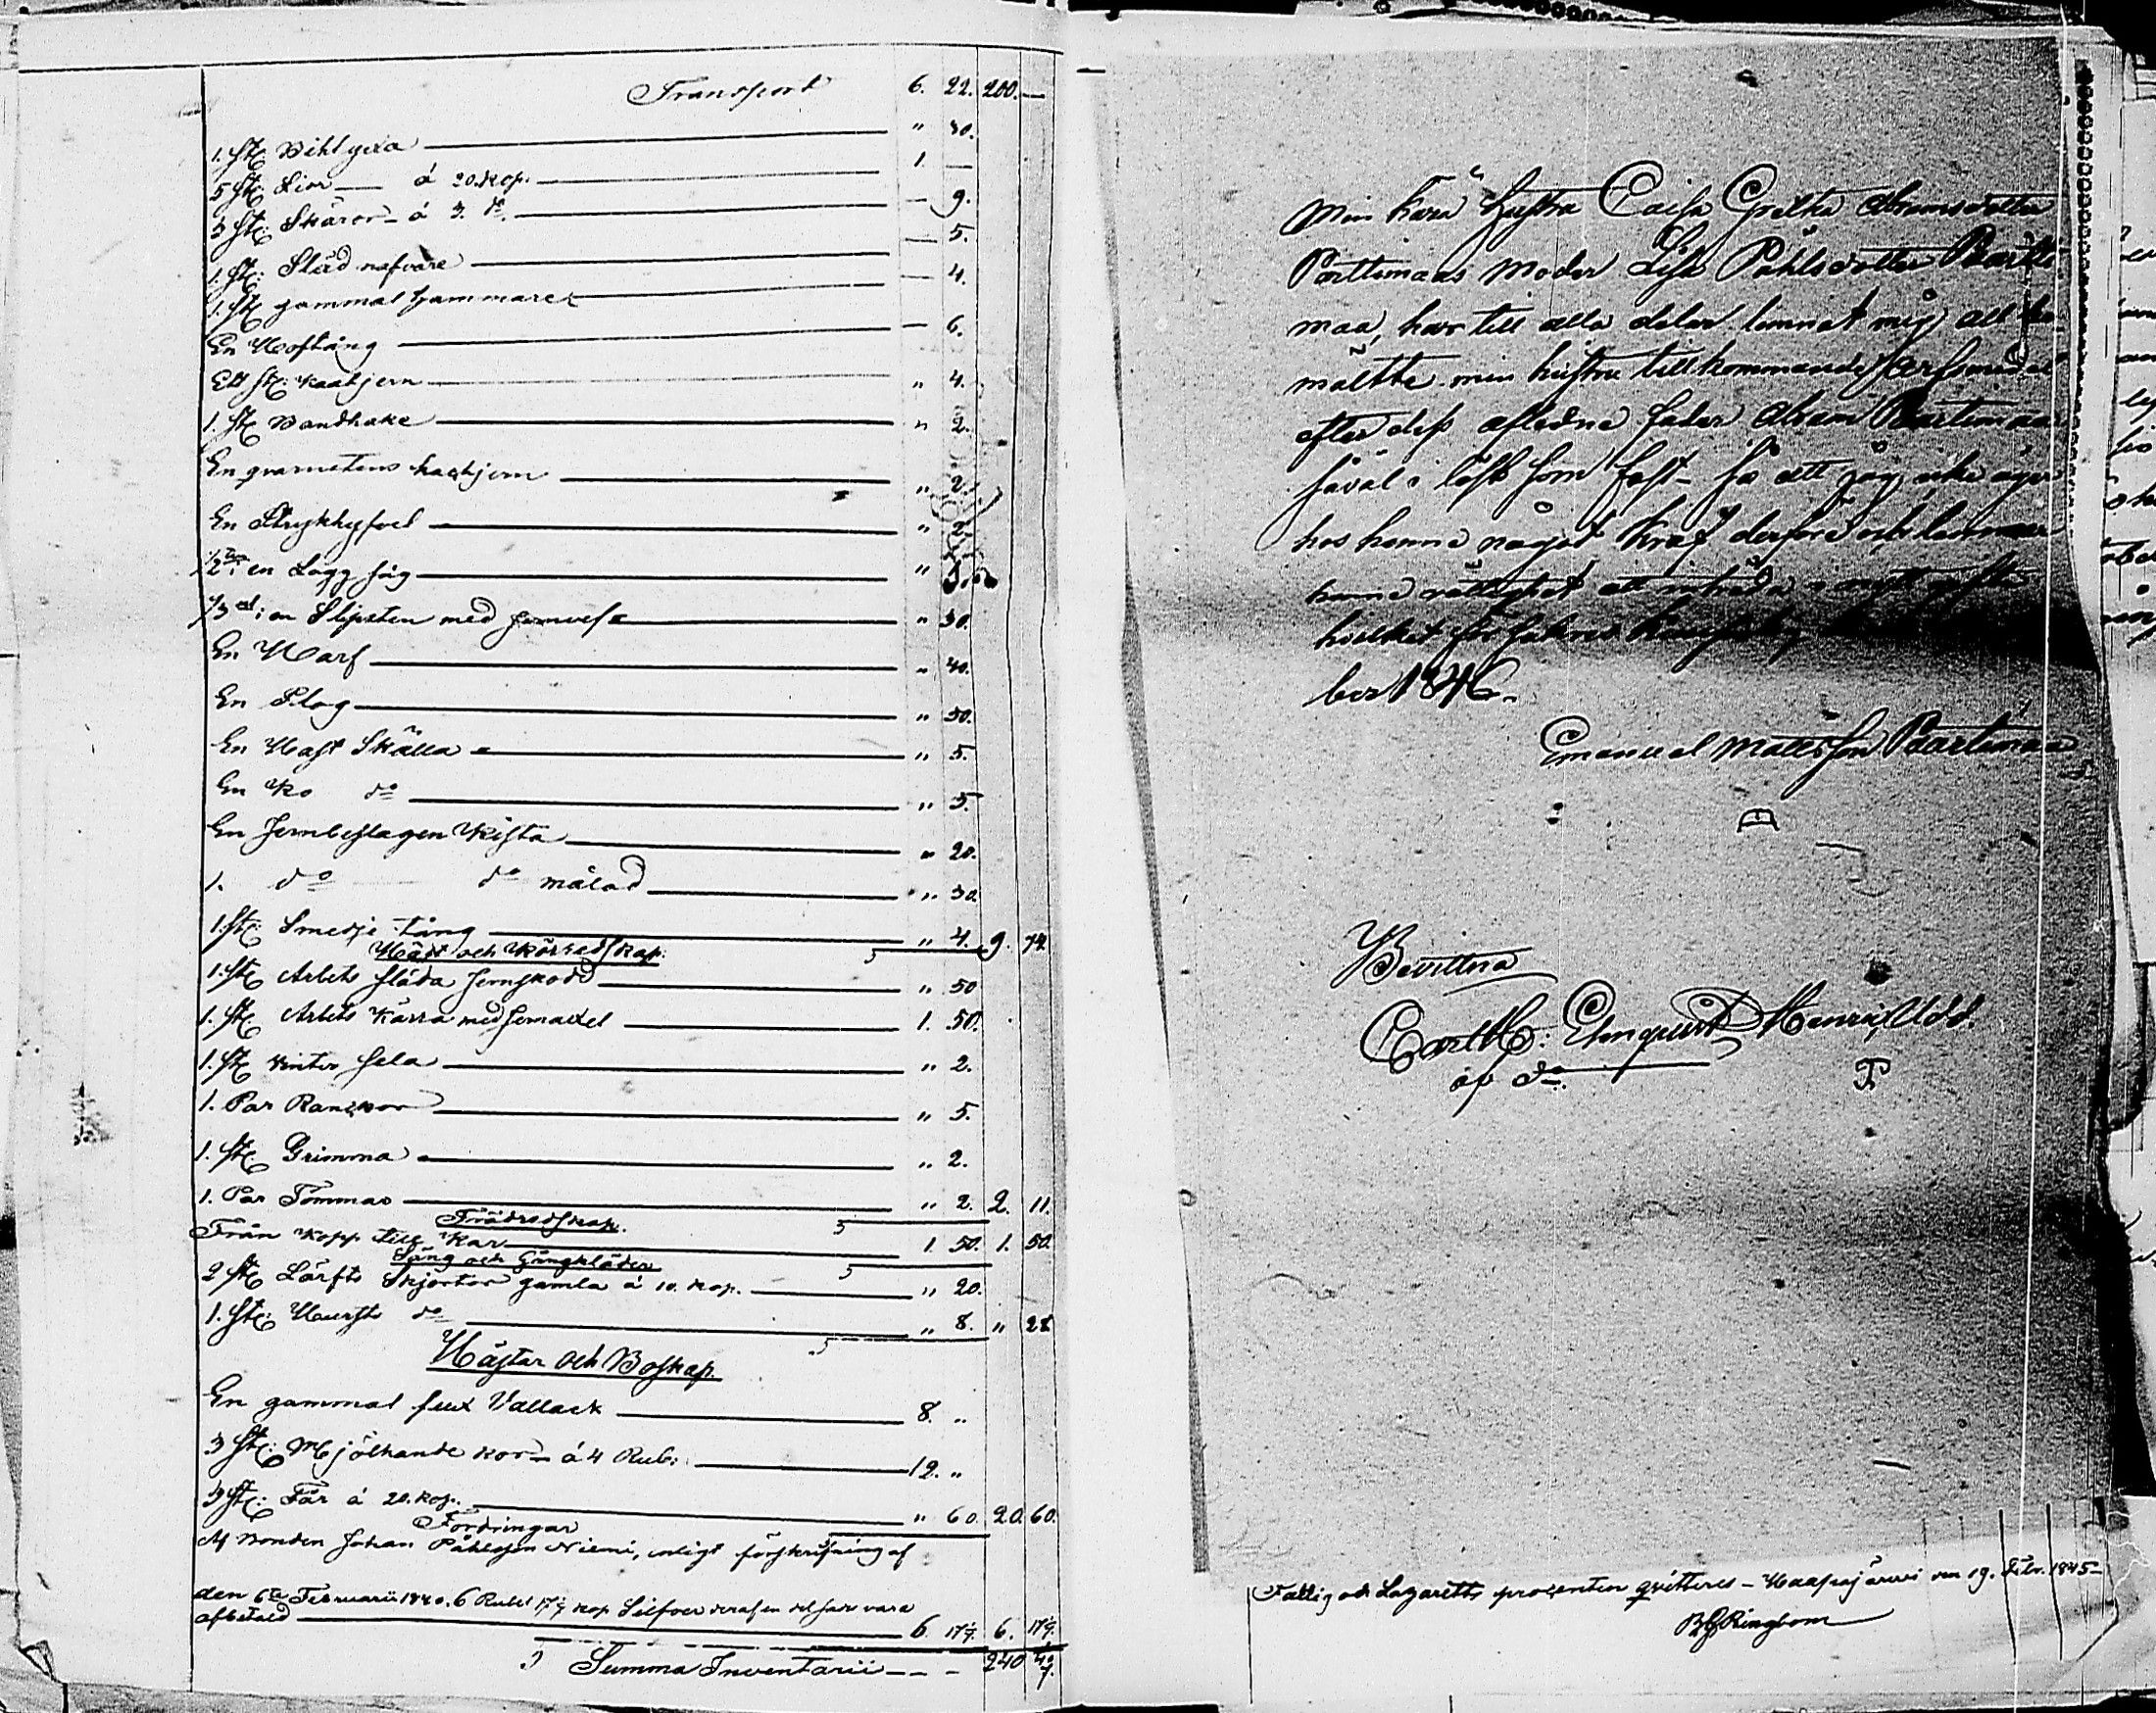 Transport 6. 22. 200. —
1. st: Bihlyxa " 30.
5 st: Liar — á 20. Kop. 1. —
3 st: Skäror — á 3. do. — 9.
1. st: Släd nafvare — 5.
1. st: gammal hammare — 4.
En Hoftång — 6.
Ett st: kaatjern " 4.
1. st: Bandhake " 2.
En qvarnstens hackjern " 2.
En Strykhyfvel " 2.
1/2 en Lagg såg "
1/3 en Slipsten med jernvef " 30.
En Harf " 40.
En Plog " 50.
En Häst Skälla " 5.
En Ko do " 5.
En Jernbeslagen Kista " 20.
1. do do målad " 30.
1. st: Smedje tång " 4. 9. 74.
Häst och Körredskap.
1. st: Arbets släda jernskodd " 50
1. st: Arbets Kärra med jernaxel 1. 50.
1. st: vinter sela " 2.
1. Par Rankor " 5.
1. st: Grimma " 2.
1. Par Tömmar " 2. 2. 11.
Trädredskap.
Från Kopp till Kar 1. 50. 1. 50.
Säng och Gångkläder
2 st: Lärfts Skjortor gamla á 10. Kop. " 20.
1. st: do " 8. " 28
Hästar och Boskap.
En gammal Vallack 8. "
3 st: Mjölkande kor — á 4 Rub: 12. "
3 st: Får á 20. Kop. " 60. 20. 60.
Fordringar
Af Bonden Johan Påhlsson Niemi, enligt förskrifning af
den 6te Februarii 1840. 6 Rubel 17 1/7 kop Silfver deraf en del vara
afbetald 6. 17 1/7. 6. 17 1/7.
Summa Inventarii — — — 240
Min Kära Hustru Caisa Gretha Abramsdotter
Parttimaas moder Lisa Påhlsdotter Bartti
maa, har till alla delar lemnat mig all
måltte min hustru tillkommande arfsmedel
efter dess aflidne fader Abram Bartimaa
såväl i löst som fast — så att jag icke äger
hos henne något Kraf derföre och lemnar
henne rättighet att inträda i mitt
hvilket försäkras
ber 1846.
Emanuel Mattsson Bartimaa
Bevittna
Carl H: Elmquist Henric Udd.
af do.
Fattig och Lazaretts procenten qvitteras — Haapajärvi den 19. Febr. 1845 —
Ringbom